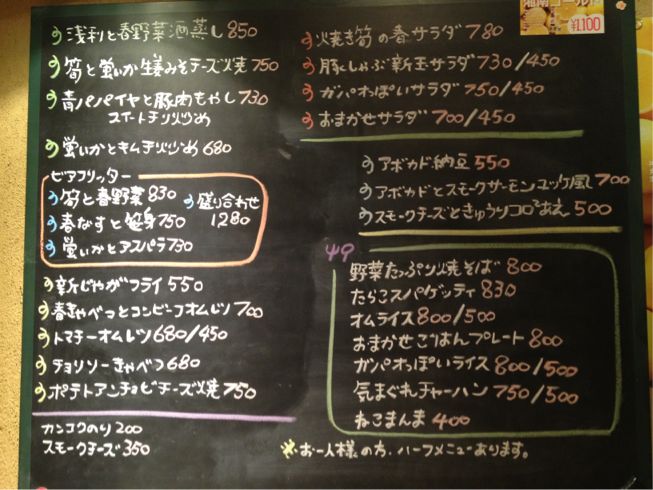 浅利と春野菜酒蒸し 850
筍と蛍いか生姜みそチーズ焼 750
青パパイヤと豚肉もやし 730
スイートチリ炒め
蛍いかとキムチ炒め 680
ビアフリッター
筍と春野菜 830
春なすと笹身 750
蛍いかとアスパラ 730
盛り合わせ
1280
新じゃがフライ 550
春きゃべつとコンビーフオムレツ 700
トマチーオムレツ 680/450
チョリソーきゃべつ 680
ポテトアンチョビチーズ焼 750
カンコクのり 200
スモークチーズ 350
¥1,100
焼き筍の春サラダ 780
豚しゃぶ新玉サラダ 730/450
ガパオっぽいサラダ 750/450
おまかせサラダ 700/450
アボカド納豆 550
アボカドとスモークサーモンユッケ風 700
スモークチーズときゅうりコロコロあえ 500
野菜たっぷり焼そば 800
たらこスパゲッティ 830
オムライス 800/500
おまかせごはんプレート 800
ガパオっぽいライス 800/500
気まぐれチャーハン 750/500
ねこまんま 400
※お一人様の方、ハーフメニューあります。